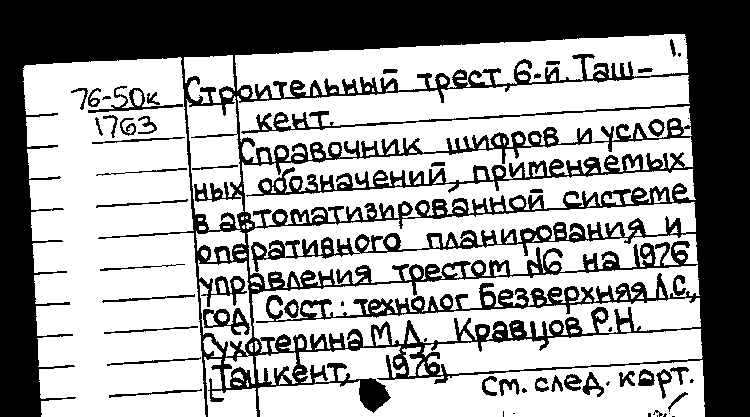 1.
76-50к
1763
Строительный трест, 6-й. Таш-
кент.
Справочник шифров и услов-
ных обозначений, применяемых
в автоматизированной системе
оперативного планирования и
управления трестом №6 на 1976
год. Сост.: технолог Безверхняя Л.С.,
Сухотерина М.Д., Кравцов Р.Н.
[Ташкент, 1976]
См. след. карт.